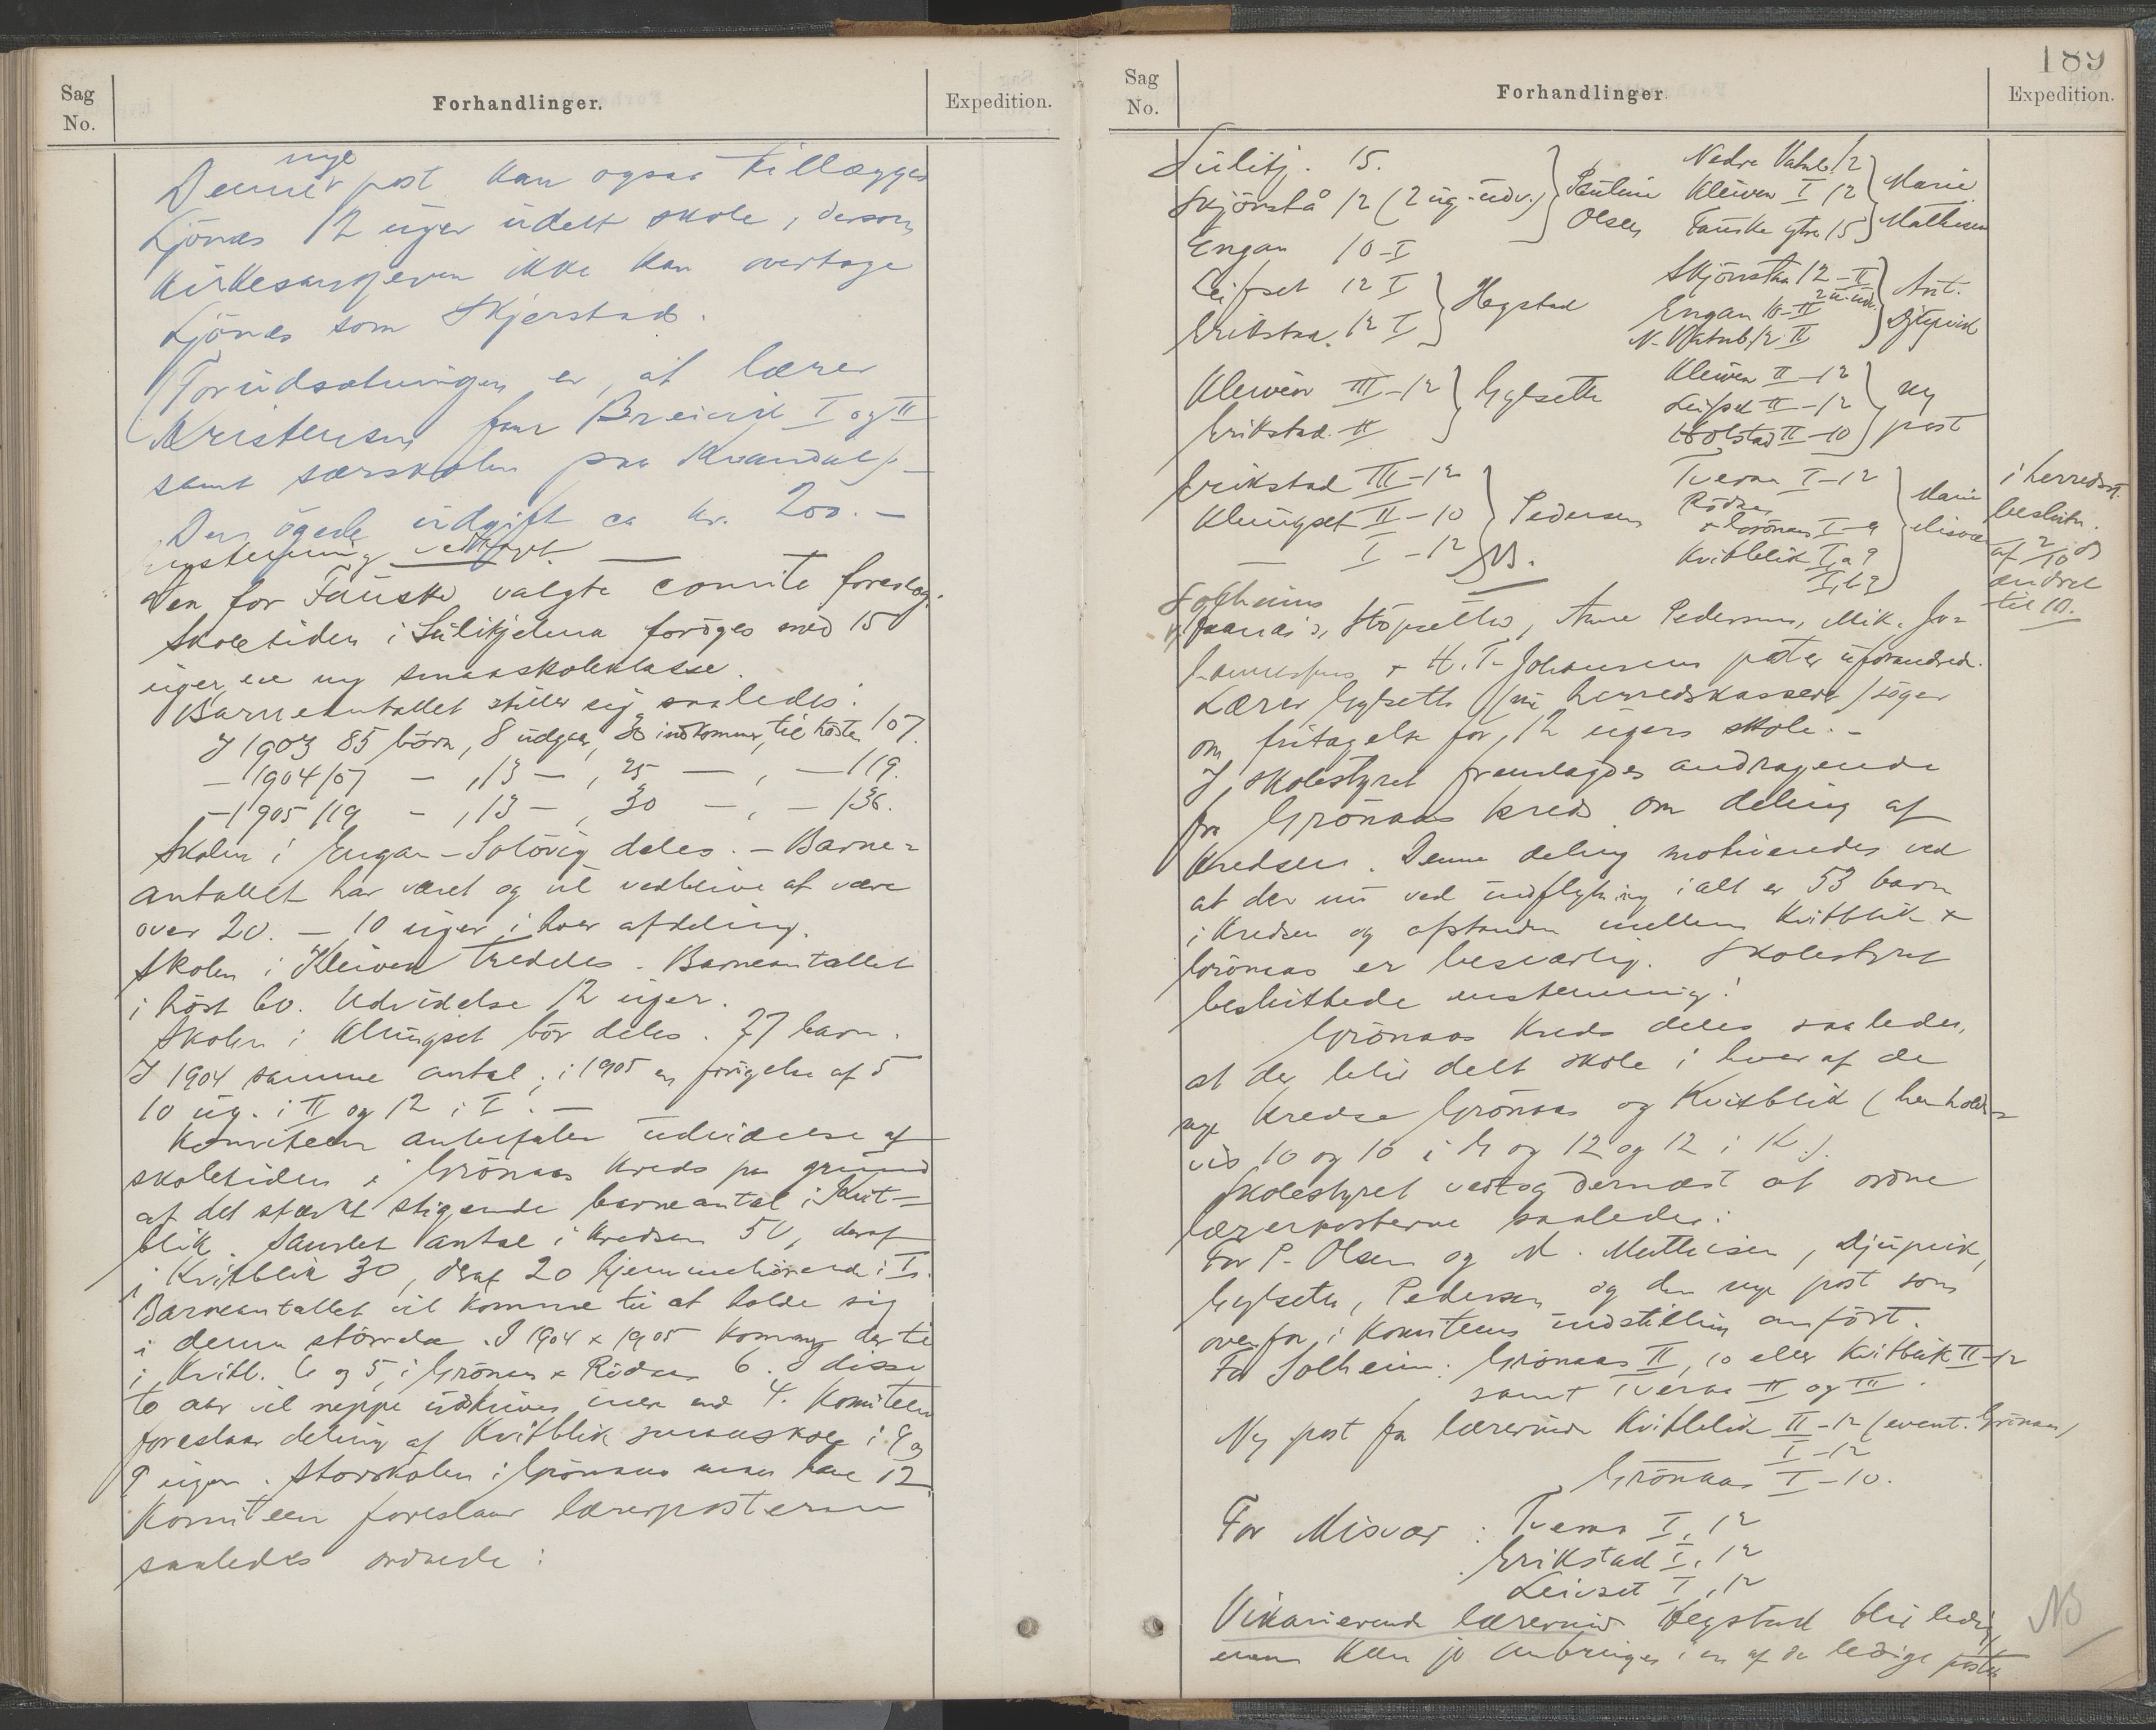 Sag
No.
Forhandlinger.
Expedition.
nye
Denne post kan ogsaa tillægges
Ljönes 12 uger udelt skole, dersom
kirkesangeren ikke kan overtage
Ljönes som Skjerstad.
Forudsætningen er, at lærer
Kristensen faar Breivik I og II
samt særskolen paa Kvandal
Den ögede udgift ca kr. 200.-
enstemmig vedtagt.
Den for Fauske valgte comite foreslog:
Skoletiden i Sulitjelma foröges med 15
uger, en ny smaaskoleklasse.
Barneantallet stiller sig saaledes:
I 1903 85 börn, 8 udgaar, 30 indkommer, til höste 107.
- 1904/07 - , 13 - , 25 - , - 119.
- 1905 119 - , 13 - , 30 - , - 136.
Skolen i Engan - Solövig deles. - Barne=
antallet har været og vil vedblive at være
over 20. - 10 uger i hver afdeling.
Skolen i Kleiven tredeles. Barneantallet
i höst 60. Udvidelse 12 uger.
Skolen i Klungset bör deles. 27 barn.
I 1904 samme antal, i 1905 en forögelse af 5
10 ug. i II og 12 i I. -
Komiteen anbefaler udvidelse af
skoletiden i Grönaas kreds paa grund
af det stærkt stigende barneantal i Kvit-
blik. Samlet antal i kredsen 50, deraf
i Kvitblik 30, deraf 20 hjemmehörende i I.
Barneantallet vil komme til at holde sig
i denne störrelse. I 1904 x 1905 kommer der til
i Kvitbl. 6 og 5, i Grönaas x Rödaas 6. I disse
to aar vil neppe udskrives mer end 4. Komiteen
foreslaar deling af Kvitblik smaaskole i 9 og
9 uger. Storskolen i Grönaas maa have 12
Komiteen foreslaar lærerposterne
saaledes ordnede:
189
Sag
No.
Forhandlinger
Expedition.
Sulitj. 15.
Skjönstå 12 (2 ug. udv.)
Engan 10-I
Pauline
Olsen
Nedre Vatnb. 12
Kleiven I 12
Fauske ytre 15
Marie
Mathisen
Leifset 12 I
Erikstad. 12 I
Hegstad
Skjönstaa 12-II
2 u. udv.
Engan 10-II
N. Vatnb. 12 II
Ant.
Djupvik
Kleiven III-12
Erikstad. II
Gylseth
Kleiven II-12
Leifset II-12
Holstad II-10
ny
post
Erikstad III-12
Klungset II-10
I-12
Pedersen
Tveraa I-12
Rödaas
x Grönaas I-9
Kvitblik I,a 9
I,b 9
Marie
Misvær
i herredsst.
beslutn.
af
ændret
til 10.
Solheims
Jonas's, Stöpseths, Anne Pedersens, Mik. Jo-
x H. T. Johansens poster uforandred.
Lærer Gylseth (nu herredskasserer) söger
om fritagelse for 12 ugers skole. -
I skolestyret fremlagdes andragende
fra Grönaas kreds om deling af
kredsen. Denne deling motiveredes ved
at der nu ved indflytning ialt er 53 barn
i kredsen og afstanden mellem Kvitblik x
Grönaas er besværlig. Skolestyret
besluttede enstemmig:
Grönaas kreds deles saaledes,
at der blir delt skole i hver af de
nye kredse Grönaas og Kvitblik (henholds=
vis 10 og 10 i G og 12 og 12 i K.).
Skolestyret vedtog dernæst at ordne
lærerposterne saaledes:
For P. Olsen og M. Mathisen, Djupvik,
Gylseth, Pedersen og den nye post som
ovenfor i Komiteens indstilling anfört.
For Solheim: Grönaas II, 10 eller Kvitblik II-12
samt Tveraa II og III.
Ny post for lærerinde Kvitblik II-12 (event. Grönaas)
I-12
Grönaas I-10.
For Misvær: Tveraa I, 12
Erikstad I, 12
Leivset I, 12
Vikarierende lærerinde Hegstad blir ledig,
men kan jo anbringes i en af de ledige poster
NB